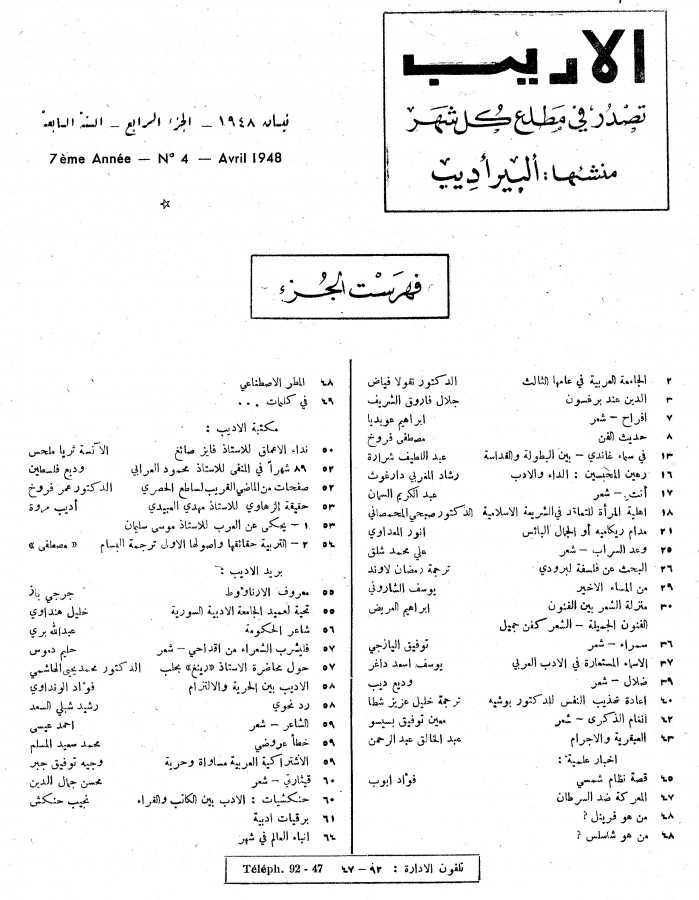 الاديب
تصدر في مطلع كل شهر
منشئها : ألبير أديب
نيسان ١٩٤٨ – الجزء الرابع – السنة السابعة
7ème Année — Nº 4 — Avril 1948
فهرست الجزء
٢ الجامعة العربية في عامها الثالث الدكتور نقولا فياض
٣ الدين عند برغسون جلال فاروق الشريف
٧ افراح – شعر ابراهيم عوبديا
٨ حديث الفن مصطفى فروخ
١٣ في سماء غاندي – بين البطولة والقداسة عبد اللطيف شرارة
١٦ رهين المحبسين : الداء والادب رشاد المغربي دارغوث
١٧ أنت – شعر عبد الكريم السمان
١٨ اهلية المرأة للتعاقد في الشريعة الاسلامية الدكتور صبحي المحمصاني
٢١ مدام ريكاميه أو الجمال البائس انور المعداوي
٢٥ وعد السراب – شعر علي محمد شلق
٢٦ البحث عن فلسفة لبرودي ترجمة رمضان لاوند
٢٩ من المساء الاخير يوسف الشاروني
٣٠ منزلة الشعر بين الفنون ابراهيم العريض
الفنون الجميلة – الشعر كفن جميل
٣٦ سمراء – شعر توفيق اليازجي
٣٧ الاسماء المستعارة في الادب العربي يوسف اسعد داغر
٣٩ ضلال – شعر وديع ديب
٤٠ اعادة تهذيب النفس للدكتور بوشيه ترجمة خليل عزيز شطا
٤٢ انغام الذكرى – شعر معين توفيق بسيسو
٤٣ العبقرية والاجرام عبد الخالق عبد الرحمن
اخبار علمية :
٤٥ قصة نظام شمسي فؤاد ايوب
٤٧ المعركة ضد السرطان
٤٨ من هو فرينل ؟
٤٨ من هو شاسلس ؟
٤٨ المطر الاصطناعي
٤٩ في كلمات . . .
مكتبة الاديب :
٥٠ نداء الاعماق للاستاذ فايز صائغ الآنسة ثريا ملحس
٥٢ ٨٩ شهراً في المنفى للاستاذ محمود العرابي وديع فلسطين
٥٢ صفحات من الماضي القريب لساطع الحصري الدكتور عمر فروخ
٥٣ حقيقة الزهاوي للاستاذ مهدي العبيدي أديب مروة
٥٣ ١ – يحكى عن العرب للاستاذ موسى سليمان
٥٤ ٢ – التربية حقائقها واصولها الاولى ترجمة البسام « مصطفى »
بريد الاديب :
٥٥ معروف الارناؤوط جرجي باز
٥٥ تحية لعميد الجامعة الادبية السورية خليل هنداوي
٥٦ شاعر الحكومة عبدالله بري
٥٧ فليشرب الشعراء من اقداحي – شعر حليم دموس
٥٧ حول محاضرة الاستاذ «رينغ» بحلب الدكتور محمد يحيى الهاشمي
٥٨ الاديب بين الحرية والالتزام فؤاد الونداوي
٥٨ رد نحوي رشيد شبلي السعد
٥٩ الشاعر – شعر احمد عيسى
٥٩ خطأ عروضي محمد سعيد المسلم
٥٩ الاشتراكية العربية مساواة وحرية وجيه توفيق جبر
٦٠ قيثارتي – شعر محسن جمال الدين
٦٠ حنكشيات : الادب بين الكاتب والقراء نجيب حنكش
٦١ برقيات ادبية
٦٤ انباء العالم في شهر
تلفون الادارة : ٩٢ – ٤٧ Téléph. 92 - 47